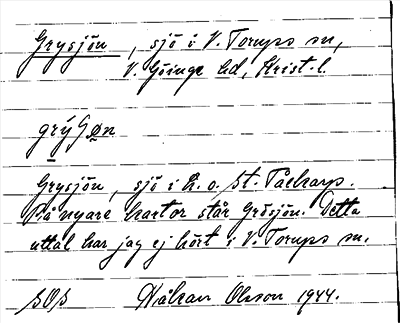 Grysjön, sjö i V. Torups sn,
V. Göinge hd, Krist. l.
Grysjön, sjö i h. o. St.
På nyare kartor står Grösjön. Detta
uttal har jag ej hört i V. Torups sn.
Håkan Olsson 1944.